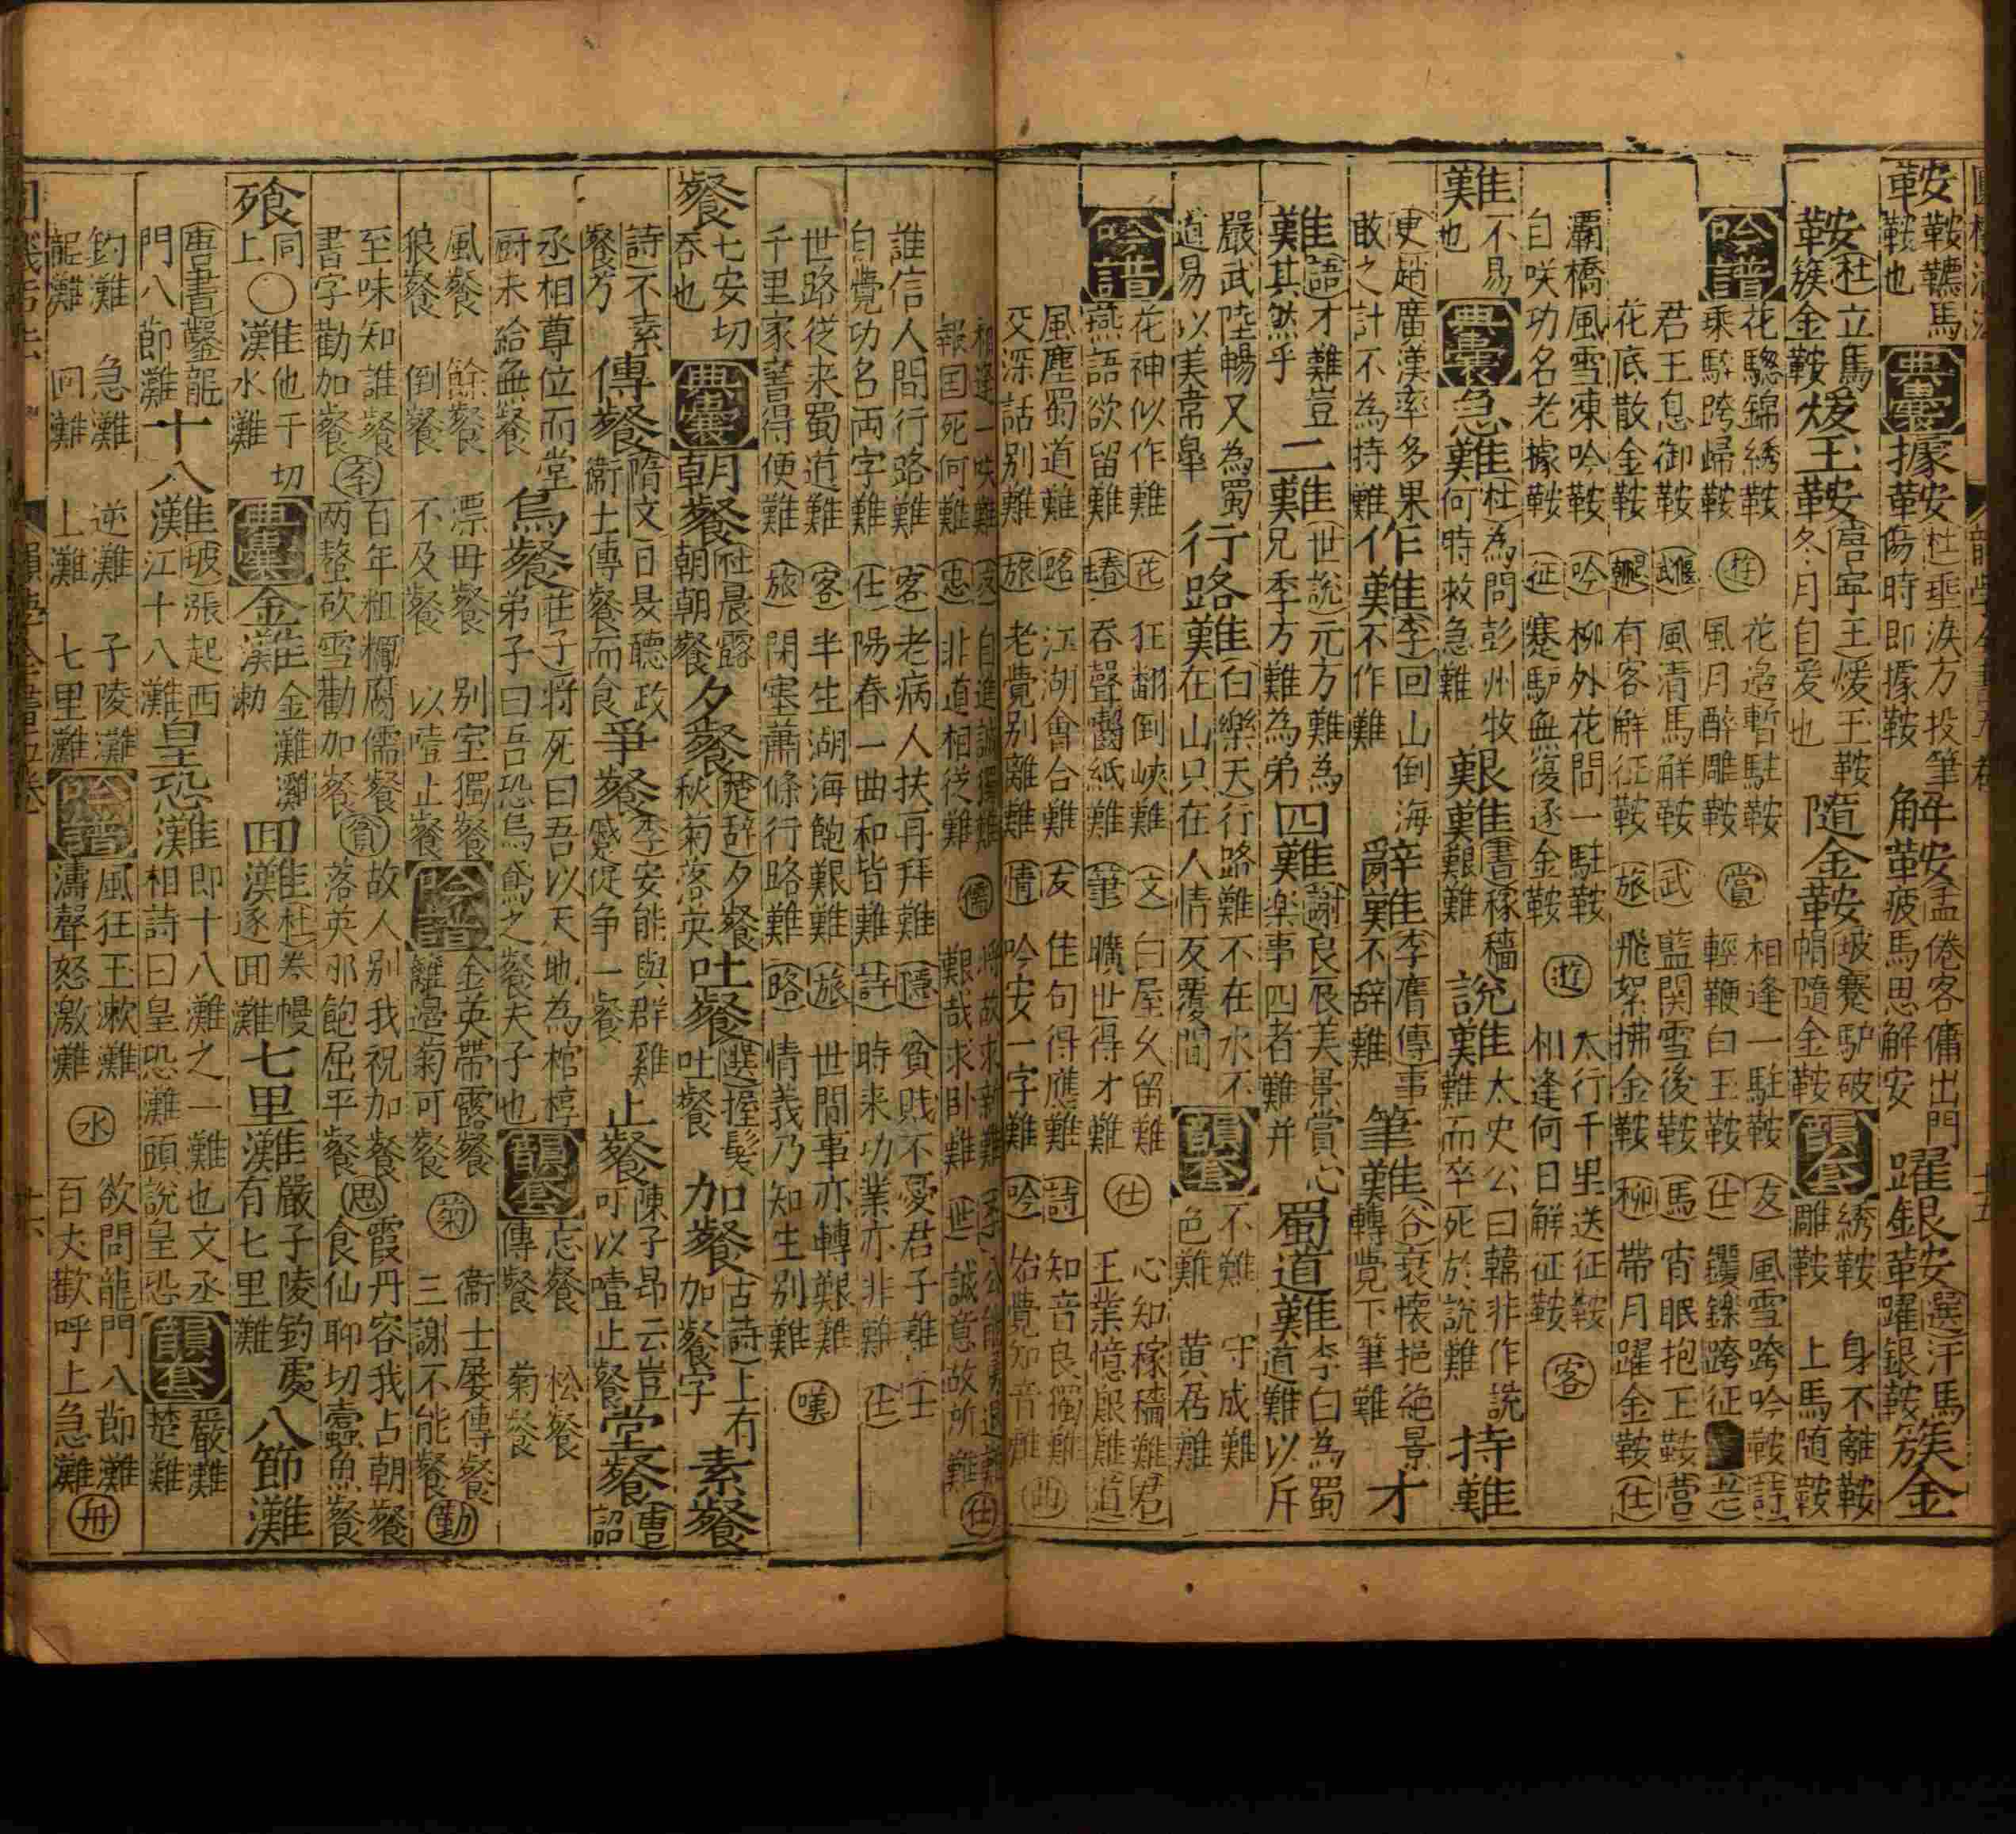 鞍 鞍韉馬鞍也 典囊 據鞍 杜垂淚方投筆傷時即據鞍 解鞍 孟倦客傭出門疲馬思解安 躍銀鞍 選汗馬躍銀鞍 簇金
鞍 杜立馬簇金鞍 煖玉鞍 唐寧王煖玉鞍冬月自爰也 隨金鞍 坡蹇驢破帽隨金鞍 韻套 綉鞍 雕鞍 身不離鞍 上馬随鞍
吟譜 花驄錦綉鞍 乘騂跨歸鞍 遊 花邉暫駐鞍 風月醉雕鞍 賞 相逢一駐鞍 輕鞭白玉鞍 友 仕 風雪跨吟鞍 钁鑠跨征 詩 老
君王息御鞍 花底散金鞍 偃武 風清馬解鞍 有客解征鞍 武 旅 藍関雪後鞍 飛絮拂金鞍 馬 柳 宵眠抱玉鞍 帶月躍金鞍 營 仕
灞橋風雪凍吟鞍 自咲功名老據鞍 吟 征 柳外花問一駐鞍 蹇馿無復逐金鞍 遊 太行千里送征鞍 相逢何日解征鞍 客
難 不易也 典囊 急難 杜為問彭州牧何時救急難 艱難 書稼穡艱難 說難 太史公曰韓非作說難而卒死於說難 持難
更趙廣漢率多果敢之計不為持難 作難 李回山倒海不作難 辭難 李膺傳事不辞難 筆難 谷衰懷挹絶景轉覺下筆難 才
難 語才難豈其然乎 二難 世說元方難為兄季方難為弟 四難 謝良辰美景賞心楽事四者難并 蜀道難 李白為蜀道難以斥
嚴武陸暢又為蜀道易以美韋皋 行路難 白樂天行路難不在水不在山只在人情反覆間 韻套 不難 色難 守成難 黄居難
吟譜 花神似作難 燕語欲留難 花 春 狂翻倒峽難 吞聲囓紙難 文 筆 白屋久留難 曠世得才難 仕 心知稼穡難 王業憶艱難 君 道
風塵蜀道難 交深話别難 路 旅 江湖會合難 老覺别離難 友 情 佳句得應難 吟安一字難 詩 吟 知音良獨難 始覺知音難
相逢一咲難 報国死何難 友 忠 自進誠獨難 非道相從難 儒 將故求新難 艱哉求卧難 世 誠意故所難 仕
誰信人間行路難 自覺功名両字難 客 仕 老病人扶再拜難 陽春一曲和皆難 隱 詩 貧賎不憂君子難 時来功業亦非難 士 仕
世路從来蜀道難 千里家書得便難 客 旅 半生湖海飽艱難 閉塞蕭條行路難 旅 路 世間事亦轉艱難 情義乃知生别難 嘆
餐 七安切吞也 典囊 朝餐 社晨露朝朝餐 夕餐 楚辞夕餐秋菊落英 吐餐 選握髮吐餐 加餐 古詩上有加餐字 素餐
詩不素餐芳 傳餐 隋文日旻聽政衞士傳餐而食 爭餐 李安能與群雞蹙促争一餐 止餐 陳子昂云豈可以噎止餐 堂餐 唐詔
丞相尊位而堂厨未給無餐 烏餐 荘子将死曰吾以天地為棺椁弟子曰吾恐烏鳶之餐夫子也 韻套 忘餐 傳餐 松餐 菊餐
風餐 狼餐 餘餐 倒餐 漂毋餐 不及餐 别室獨餐 以噎止餐 吟譜 金英帶露餐 離邉菊可餐 菊 衞士屡傳餐 三謝不能餐 勤
至味知誰餐 書字勸加餐 孝 百年粗糲腐儒餐 两螯砍雪勸加餐 貧 故人别我祝加餐 落英那飽屈平餐 思 霞丹容我占朝餐 食仙聊切蠧魚餐
飱 同上 〇 灘 他干切水灘 典囊 金灘 金灘灘勑 囬灘 杜卷幔逐囬灘 七里灘 嚴子陵釣處有七里灘 八節灘
唐書鑿龍門八節灘 十八灘 坡漲起西江十八灘 皇恐灘 即十八灘之一難也文丞相詩曰皇恐灘頭說皇恐 韻套 嚴灘 楚難
釣灘 龍灘 急灘 回灘 逆灘 上灘 子陵灘 七里灘 吟譜 風狂玉漱灘 濤聲怒激灘 水 欲問龍門八節灘 百丈歡呼上急灘 舟